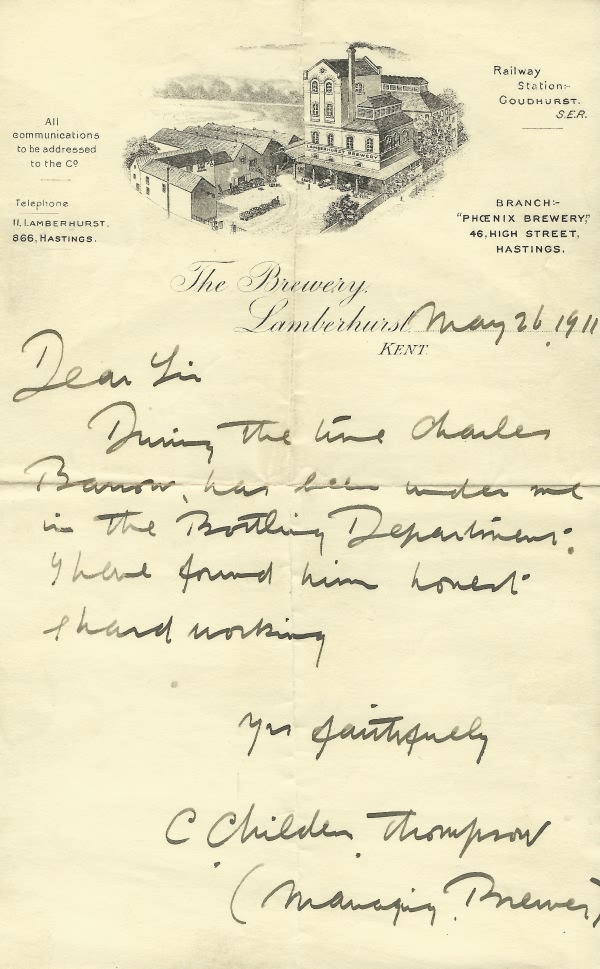 All
communications
to be addressed
to the Co
Telephone
11, LAMBERHURST.
866, HASTINGS.
LAMBERHURST BREWERY
Railway
Station:-
GOUDHURST.
S.E.R.
BRANCH:-
"PHŒNIX BREWERY,"
46, HIGH STREET,
HASTINGS.
The Brewery,
Lamberhurst May 26 1911
KENT.
Dear Sir
During the time Charles
Barrow, has been under me
in the Bottling Department.
I have found him honest
& hard working
Yrs faithfully
C. Childers Thompson
(Managing Brewer)